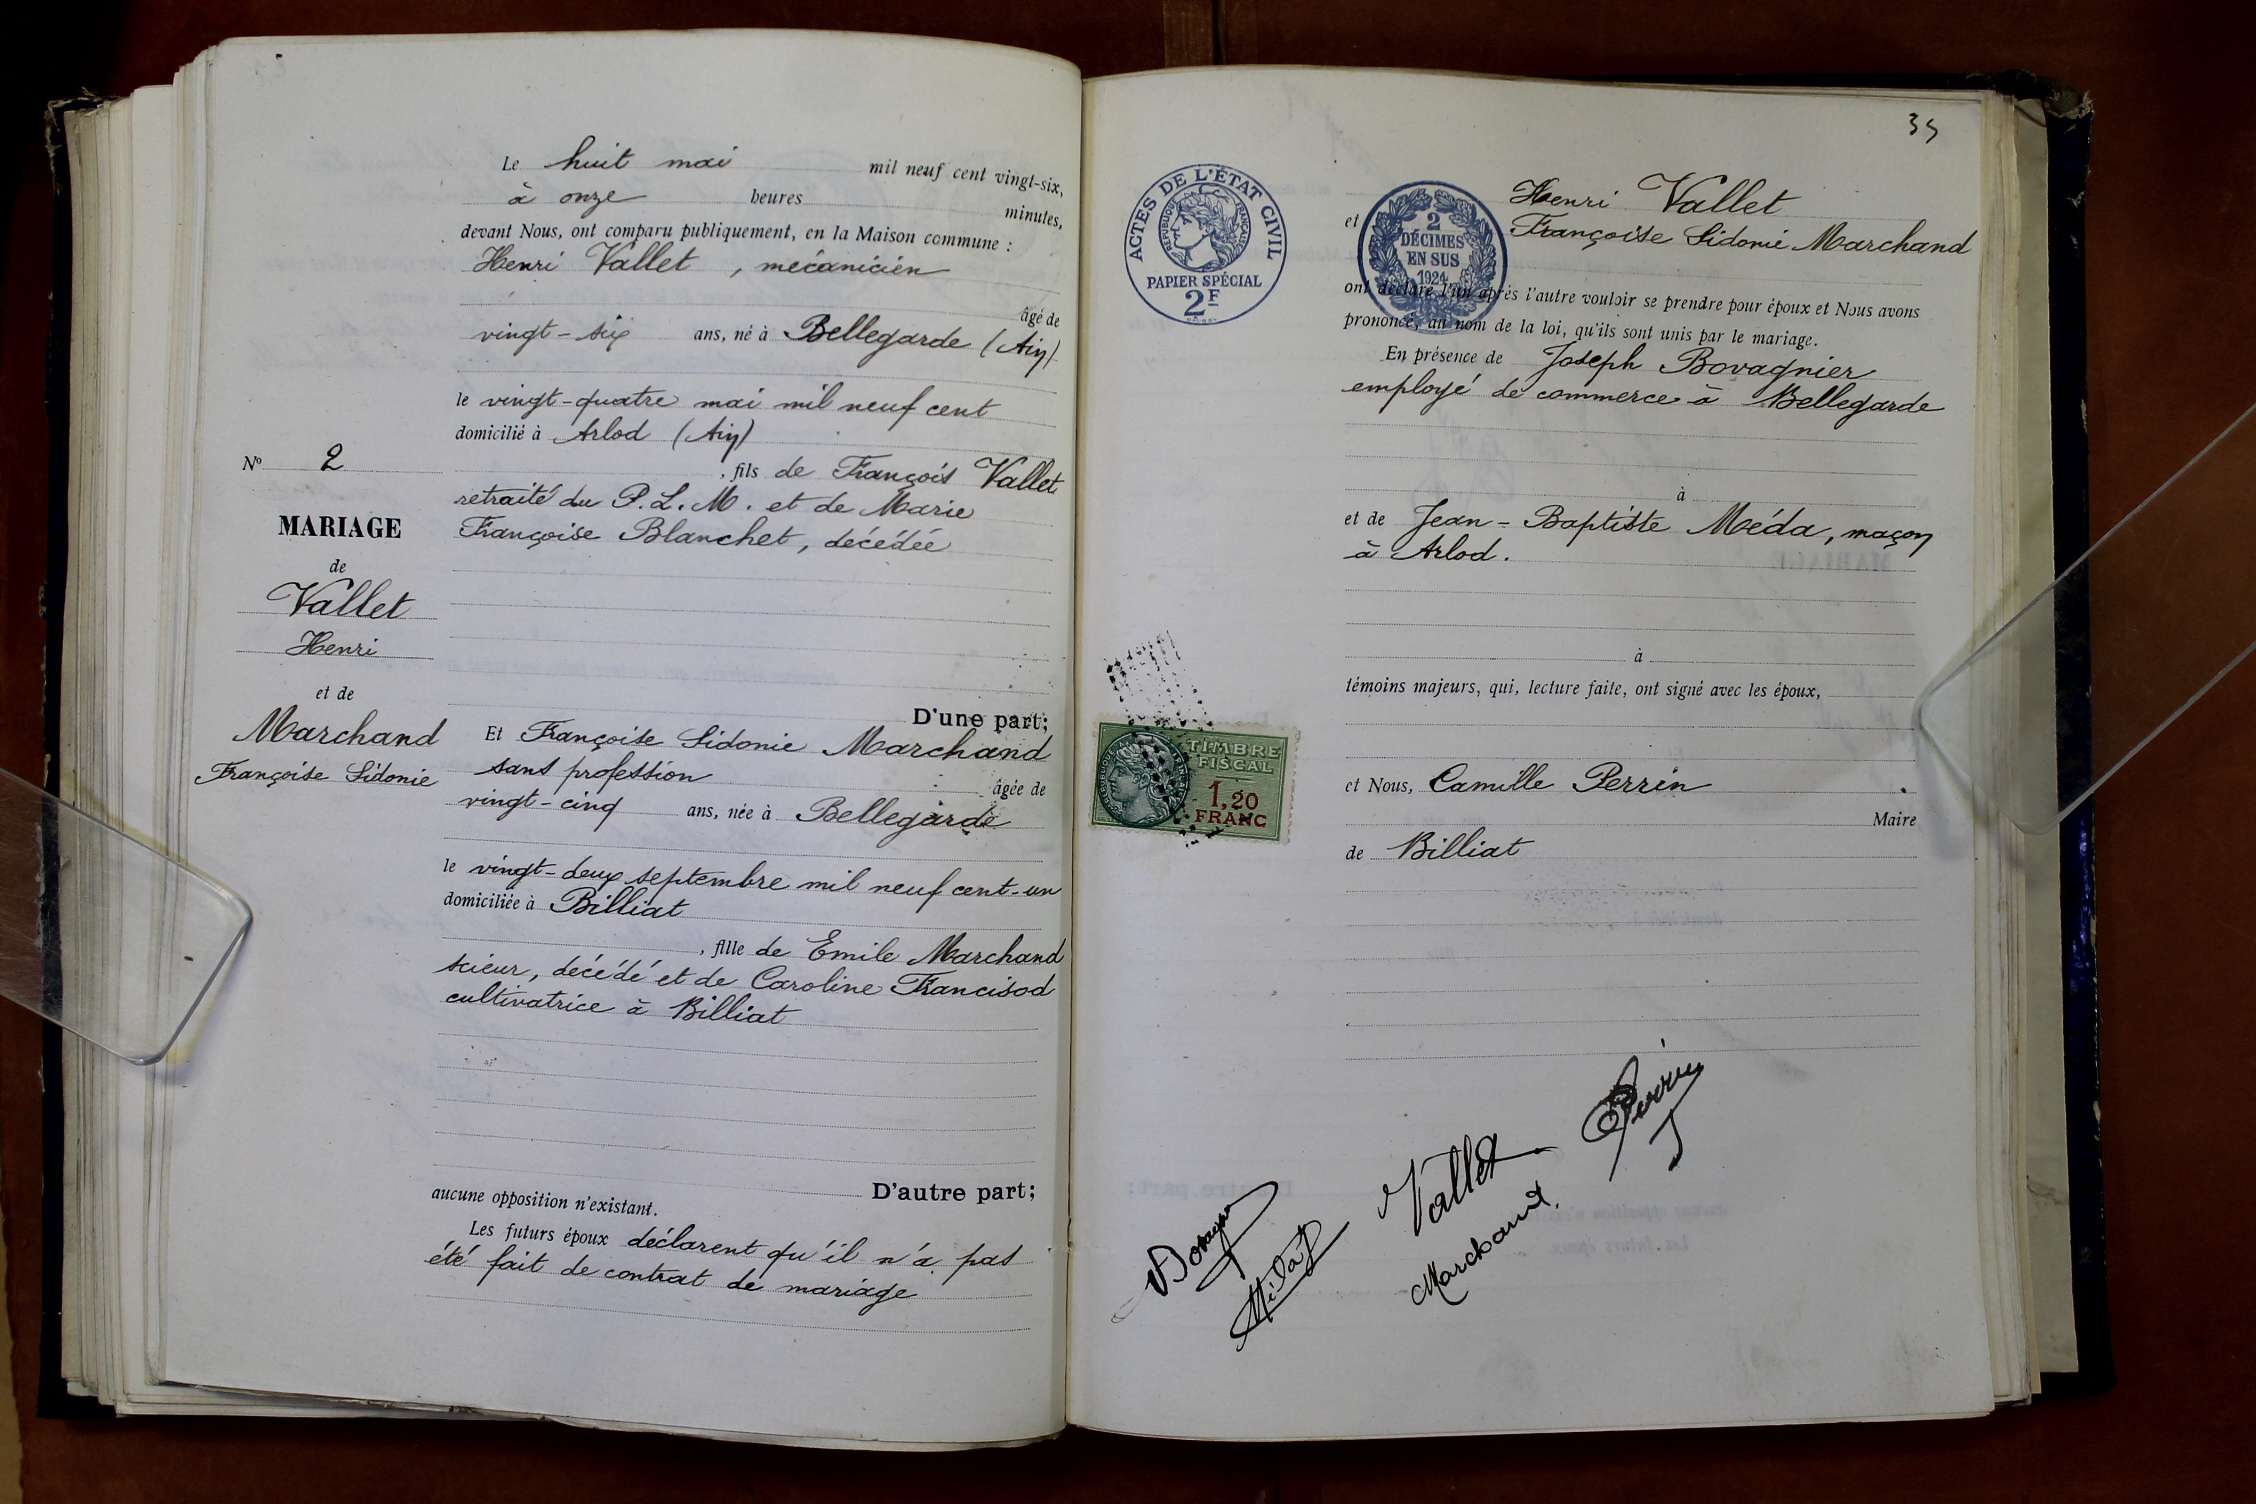 Le huit mai mil neuf cent vingt-six,
à onze heures minutes,
devant Nous, ont comparu publiquement, en la Maison commune :
Henri Vallet, mécanicien
âgé de
vingt-six ans, né à Bellegarde (Ain)
le vingt-quatre mai mil neuf cent
domicilié à Arlod (Ain)
, fils de François Vallet
retraité du P.L.M. et de Marie
Françoise Blanchet, décédée
D'une part;
Et Françoise Sidonie Marchand
sans profession âgée de
vingt-cinq ans, née à Bellegarde
le vingt-deux septembre mil neuf cent-un
domiciliée à Billiat
, fille de Emile Marchand
scieur, décédé et de Caroline Francisod
cultivatrice à Billiat
D'autre part;
aucune opposition n'existant.
Les futurs époux déclarent qu'il n'a pas
été fait de contrat de mariage
No 2
MARIAGE
de
Vallet
Henri
et de
Marchand
Françoise Sidonie
35
ACTES DE L'ÉTAT CIVIL
RÉPUBLIQUE FRANÇAISE
PAPIER SPÉCIAL
2F
2
DÉCIMES
EN SUS
1924
Henri Vallet
et Françoise Sidonie Marchand
ont déclaré l'un après l'autre vouloir se prendre pour époux et Nous avons
prononcé, au nom de la loi, qu'ils sont unis par le mariage.
En présence de Joseph Bovagnier
employé de commerce à Bellegarde
à
et de Jean-Baptiste Méda, maçon
à Arlod.
à
témoins majeurs, qui, lecture faite, ont signé avec les époux,
TIMBRE
FISCAL
1,20
FRANC
et Nous, Camille Perrin
Maire
de Billiat
Perrin
Vallet
Marchand.